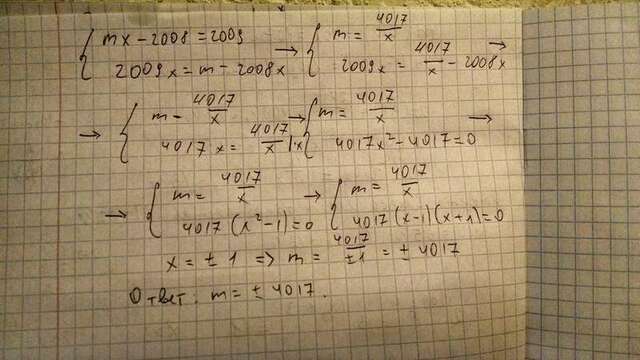 { mx - 2008 = 2009 → { m = 4017/x
{ 2009x = m - 2008x { 2009x = 4017/x - 2008x →
→ { m - 4017/x → { m = 4017/x
{ 4017x = 4017/x |·x { 4017x² - 4017 = 0 →
→ { m = 4017/x → { m = 4017/x
{ 4017(x² - 1) = 0 { 4017(x-1)(x+1) = 0
x = ± 1 => m = 4017/±1 = ± 4017
Ответ: m = ± 4017.